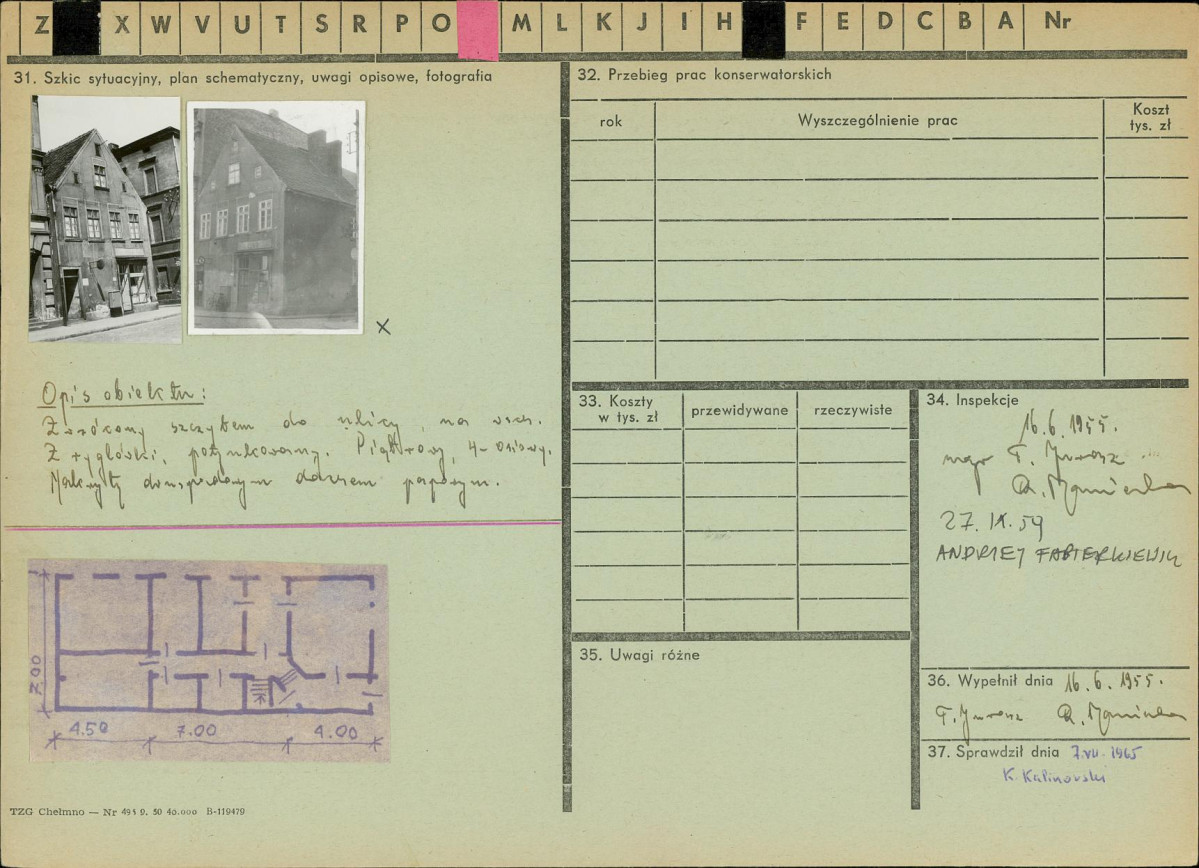 Z X W V U T S R P O M L K J I H F E D C B A Nr
31. Szkic sytuacyjny, plan schematyczny, uwagi opisowe, fotografia
x
Opis obiektu:
Zwrócony szczytem do ulicy, na wsch.
Z ryglówki, potynkowany. Piętrowy, 4-osiowy.
Nakryty dwuspadowym dachem
7.00
4.50 7.00 4.00
TZG Chełmno — Nr 495 9. 50 40.000 B-119479
32. Przebieg prac konserwatorskich
rok
Wyszczególnienie prac
Koszt
tys. zł
33. Koszty
w tys. zł
przewidywane
rzeczywiste
34. Inspekcje
16.6.1955.
mgr
27.IX.59
ANDRZEJ
35. Uwagi różne
36. Wypełnił dnia 16.6.1955.
37. Sprawdził dnia 7.VII.1965
K. Kalinowski